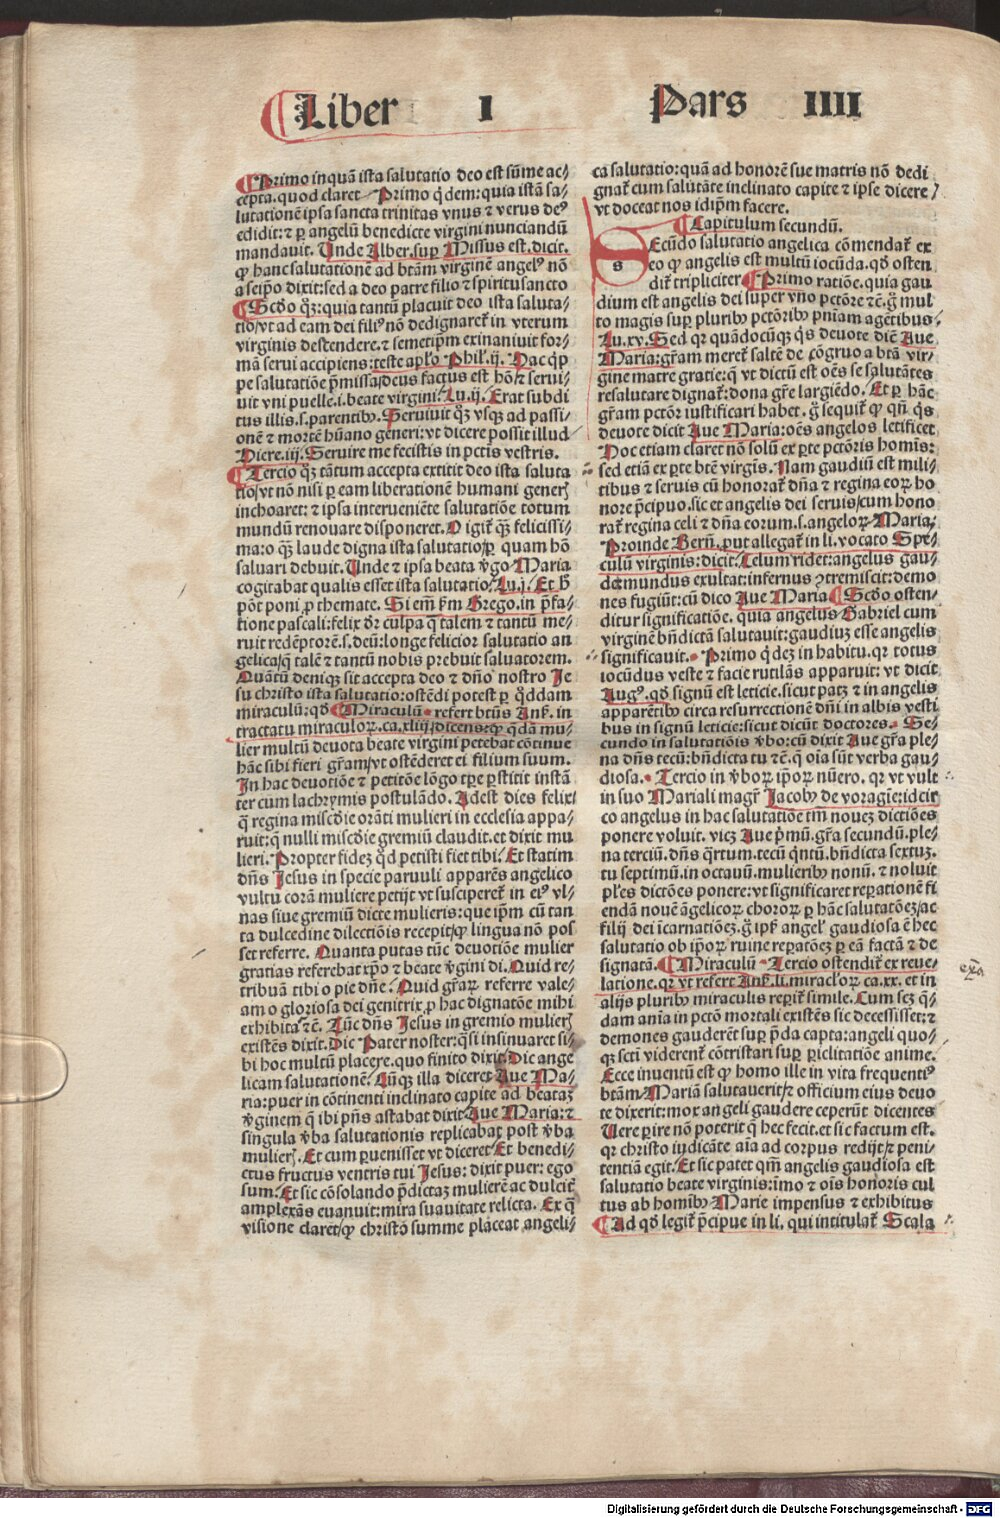 Liber I Pars IIII
Primo inquā ista salutatio deo est sūme ac/
cepta. quod claret Primo q̇dem: quia istā sa/
lutationē ipsa sancta trinitas vnus ⁊ verus deꝰ
edidit: ⁊ ꝑ angelū benedicte virgini nunciandū
mandauit. Unde Alber. suꝑ Missus est. dicit.
ꝙ hanc salutationē ad btām virginē angelꝰ nō
a seip̄o dixit: sed a deo patre filio ⁊ spiritusancto
Scďo q̇ꝫ: quia tantū placuit deo ista saluta/
tio/vt ad eam dei filiꝰ nō dedignaret̄ in vterum
virginis descendere. ⁊ semetip̄m exinaniuit for/
mā serui accipiens: teste aplo Phil'. ij. Hac q̇p
pe salutatiōe p̄missa/deus factus est hō/⁊ serui/
uit vni puelle. i. beate virgini. Lu. ij. Erat subdi
tus illis. s. parentibꝰ. Seruiuit q̇ꝫ vsqꝫ ad passi/
onē ⁊ mortē hūano generi: vt dicere possit illud
Hiere. iij. Seruire me fecistis in pctis vestris.
Tercio q̇ꝫ tātum accepta extitit deo ista saluta
tio/vt nō nisi ꝑ eam liberationē humani generꝭ
inchoaret: ⁊ ipsa interueniēte salutatiōe totum
mundū renouare disponeret. O igit̄ q̄ꝫ felicissi/
ma: o q̄ꝫ laude digna ista salutatio/ꝑ quam hō
saluari debuit. Unde ⁊ ipsa beata v̄go Maria
cogitabat qualis esset ista salutatio. Lu. j. Et h̄
pōt poni ꝓ themate. Si em̄ ẜm Grego. in p̄fa/
tione pascali: felix dr̄ culpa q̄ talem ⁊ tantū me/
ruit redēptorē. s. deū: longe felicior salutatio an
gelica/q̄ talē ⁊ tantū nobis prebuit saluatorem.
Quātū deniqꝫ sit accepta deo ⁊ dn̄o nostro Je
su christo ista salutatio: ostēdi potest ꝑ q̇ddam
miraculū: qď Miraculū refert btūs Ans̄. in
tractatu miraculoꝝ. ca. xliij. dicens: ꝙ q̄dā mu/
lier multū deuota beate virgini petebat cōtinue
hāc sibi fieri gr̄am/vt ostēderet ei filium suum.
In hac deuotiōe ⁊ petitōe lōgo tꝑe ꝑstitit instā
ter cum lachrymis postulādo. Adest dies felix/
q̄ regina misc̄die orāti mulieri in ecclesia appa/
ruit: q̄ nulli misc̄die gremiū claudit. et dixit mu
lieri. Propter fideꝫ q̇d petisti fiet tibi. Et statim
dn̄s Jesus in specie paruuli apparēs angelico
vultu corā muliere petijt vt susciperet̄ in eiꝰ vl/
nas siue gremiū dicte mulieris: que ip̄m cū tan
ta dulcedine dilectiōis recepit/ꝙ lingua nō pos
set referre. Quanta putas tūc deuotiōe mulier
gratias referebat xp̄o ⁊ beate v̄gini di. Quid re/
tribuā tibi o pie dn̄e. Quid gr̄aꝝ referre vale/
am o gloriosa dei genitrix ꝓ hac dignatōe mihi
exhibita ⁊c̄. Tūc dn̄s Jesus in gremio mulierꝭ
existēs dixit. Dic Pater noster: q̄si insinuaret si/
bi hoc multū placere. quo finito dixit. Dic ange
licam salutationē. Cūqꝫ illa diceret Aue Ma/
ria: puer in cōtinenti inclinato capite ad beataꝫ
v̄ginem q̄ ibi p̄ns astabat dixit Aue Maria: ⁊
singula v̄ba salutationis replicabat post v̄ba
mulierꝭ. Et cum ꝑuenisset vt diceret Et benedi/
ctus fructus ventris tui Jesus: dixit puer: ego
sum. Et sic cōsolando p̄dictaꝫ mulierē ac dulcit̄
amplexās euanuit: mira suauitate relicta. Ex q̄
visione claret/ꝙ christo summe placeat angeli/
ca salutatio: quā ad honorē sue matris nō dedi
gnat̄ cum salutāte inclinato capite ⁊ ipse dicere/
vt doceat nos idip̄m facere.
Capitulum secundū.
Secūdo salutatio angelica cōmendat̄ ex
eo ꝙ angelis est multū iocūda. qď osten
dit̄ tripliciter Primo ratiōe. quia gau
dium est angelis dei super vno pctōre ⁊c̄. g̊ mul
to magis suꝑ pluribꝰ pctōribꝰ pn̄iam agētibus.
Lu. xv. Sed qr quādocūqꝫ q̇s deuote dicit Aue
Maria: gr̄am meret̄ saltē de cōgruo a btā vir/
gine matre gratie: q̄ vt dictū est oēs se salutātes
resalutare dignat̄: dona gr̄e largiēdo. Et ꝑ hāc
gr̄am pctōr iustificari habet. g̊ sequit̄ ꝙ qn̄ q̇s
deuote dicit Aue Maria: oēs angelos letificet
Hoc etiam claret nō solū ex ꝑte pctōris homīs:
sed etiā ex ꝑte btē virgīs. Nam gaudiū est mili/
tibus ⁊ seruis cū honorat̄ dn̄a ⁊ regina eoꝝ ho
nore p̄cipuo. sic et angelis dei seruis/cum hono
rat̄ regina celi ⁊ dn̄a eorum. s. angeloꝝ Maria.
Proinde Bern̄. ꝓut allegat̄ in li. vocato Spe/
culū virginis: dicit. Celum ridet: angelus gau/
det mundus exultat: infernus ꝯtremiscit: demo
nes fugiūt: cū dico Aue Maria Scďo osten/
ditur significatiōe. quia angelus Gabriel cum
virginē bn̄dictā salutauit: gaudiuꝫ esse angelis
significauit. Primo q̇deꝫ in habitu. qr totus
iocūdus veste ⁊ facie rutilās apparuit: vt dicit
Augꝰ. qď signū est leticie. sicut patꝫ ⁊ in angelis
apparētibꝰ circa resurrectionē dn̄i in albis vesti
bus in signū leticie: sicut dicūt doctores. Se/
cundo in salutatiōis v̄bo: cū dixit Aue gr̄a ple/
na dn̄s tecū: bn̄dicta tu ⁊c̄. q̄ oīa sūt verba gau/
diosa. Tercio in v̄boꝝ ip̄oꝝ nūero. qr vt vult
in suo Mariali magr̄ Jacobꝰ de voragīe: idcir
co angelus in hac salutatiōe tm̄ noueꝫ dictiōes
ponere voluit. vicꝫ Aue p̄mū. gr̄a secundū. ple/
na terciū. dn̄s q̄rtum. tecū q̇ntū. bn̄dicta sextuꝫ.
tu septimū. in octauū. mulieribꝰ nonū. ⁊ noluit
pl'es dictōes ponere: vt significaret reꝑationē fi
endā nouē āgelicoꝝ choroꝝ ꝑ hāc salutatōeꝫ/ac
filij dei īcarnatiōeꝫ. g̊ ip̄e angelꝰ gaudiosa ē hec
salutatio ob ip̄oꝝ ruine reꝑatōeꝫ ꝑ eā factā ⁊ de
signatā. Miraculū Tercio ostendit̄ ex reue/
latione. qr vt refert Ans̄. li. miracl'oꝝ ca. xx. et in
alijs pluribꝰ miraculis reꝑit̄ simile. Cum scꝫ q̄/
dam anīa in pctō mortali existēs sic decessisset: ⁊
demones gauderēt suꝑ p̄da capta: angeli quo/
qꝫ scti viderent̄ cōtristari suꝑ ꝑiclitatiōe anime.
Ecce inuentū est ꝙ homo ille in vita frequentiꝰ
btām Mariā salutauerit/⁊ officium eius deuo
te dixerit: mox angeli gaudere ceperūt dicentes
Uere ꝑire nō poterit q̄ hec fecit. et sic factum est.
qr christo iudicāte aīa ad corpus redijt/⁊ peni/
tentiā egit. Et sic patet qm̄ angelis gaudiosa est
salutatio beate virginis: īmo ⁊ oīs honoris cul
tus ab homībꝰ Marie impensus ⁊ exhibitus
Ad qď legit̄ p̄cipue in li. qui intitulat̄ Scala
Digitalisierung gefördert durch die Deutsche Forschungsgemeinschaft - DFG